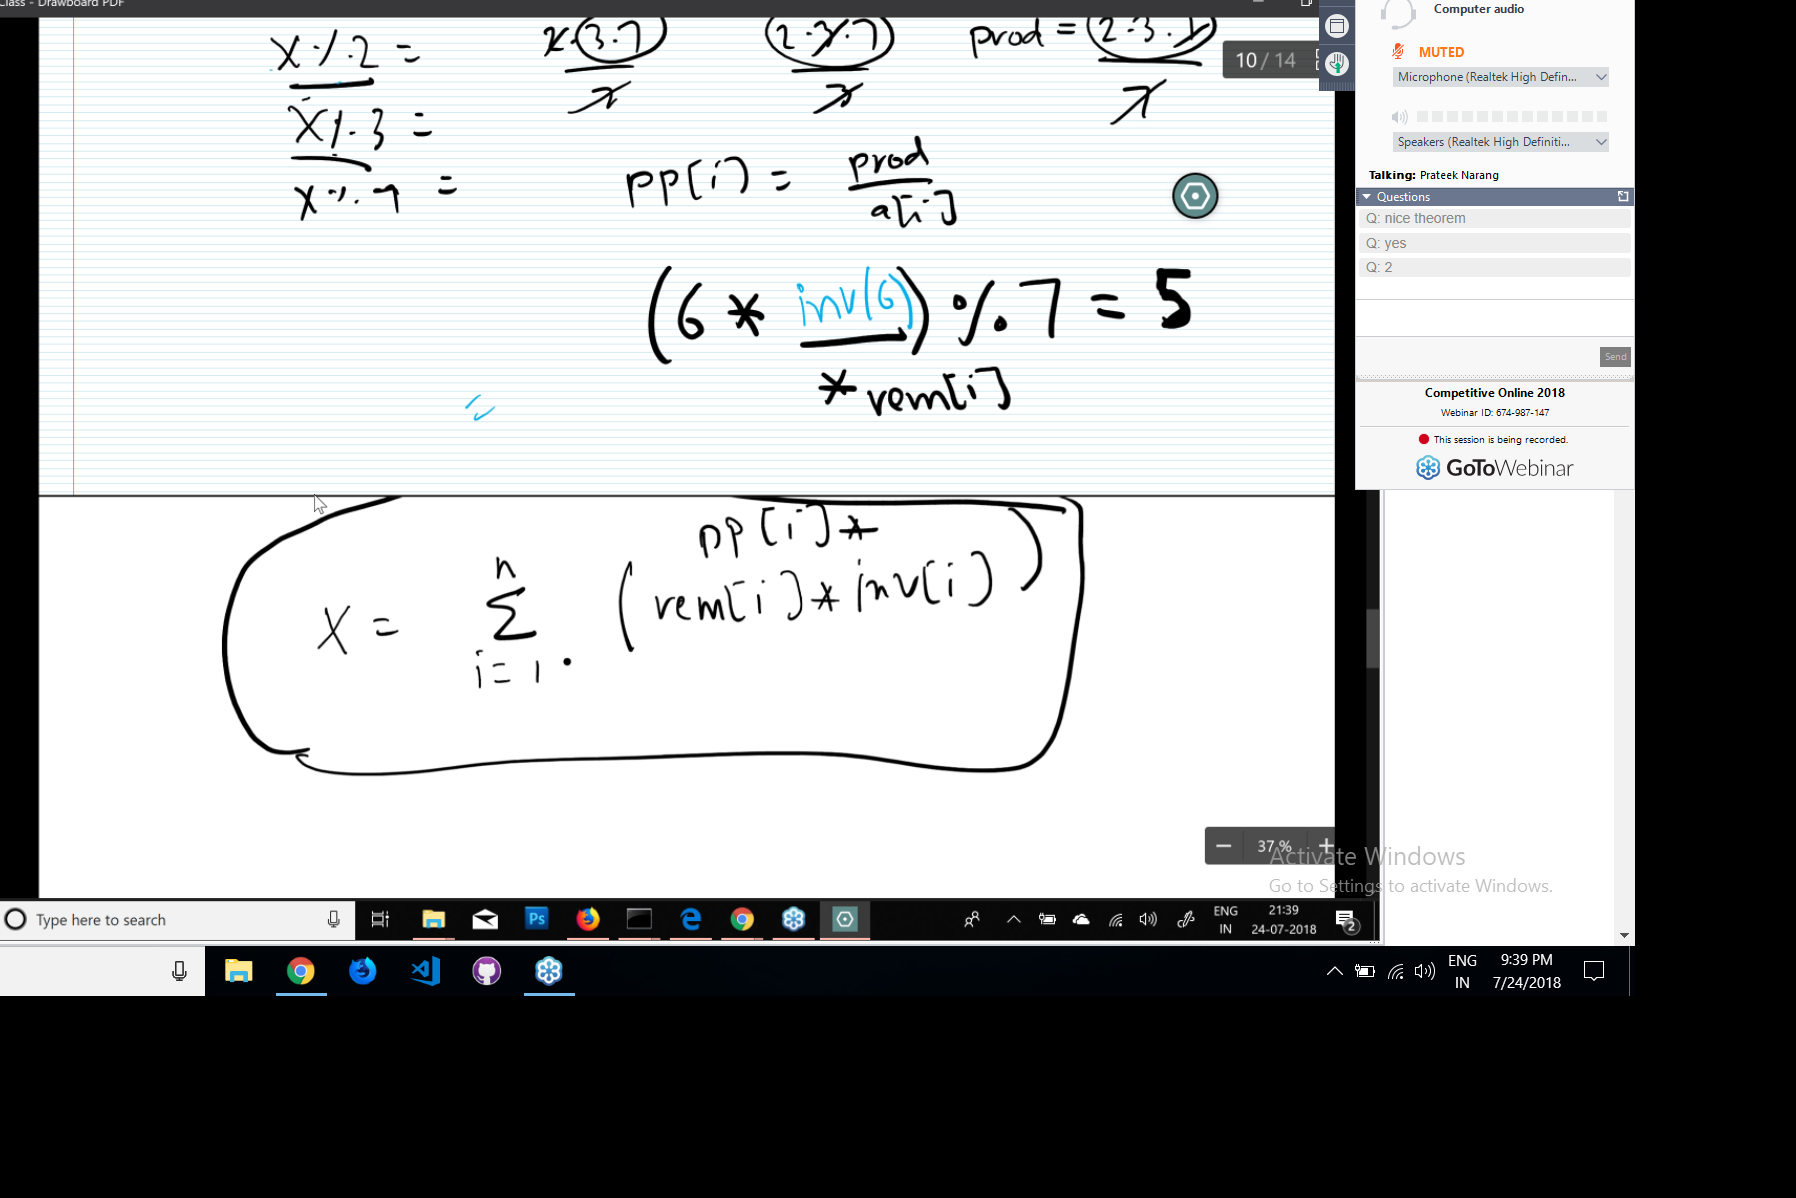 Class - Drawboard PDF
x % 2 =
2.3.7
2
2.3.7
3
prod = 2.3.7
7
10 / 14
x % 3 =
x % 7 =
pp[i] = prod
a[i]
(6 * inv(6)) % 7 = 5
* rem[i]
=
pp[i] *
x = n
Σ (rem[i] * inv[i])
i = 1
37%
Computer audio
MUTED
Microphone (Realtek High Defin...
Speakers (Realtek High Definiti...
Talking: Prateek Narang
Questions
Q: nice theorem
Q: yes
Q: 2
Send
Competitive Online 2018
Webinar ID: 674-987-147
This session is being recorded.
GoToWebinar
Activate Windows
Go to Settings to activate Windows.
Type here to search
Ps
ENG
IN
21:39
24-07-2018
2
ENG
IN
9:39 PM
7/24/2018